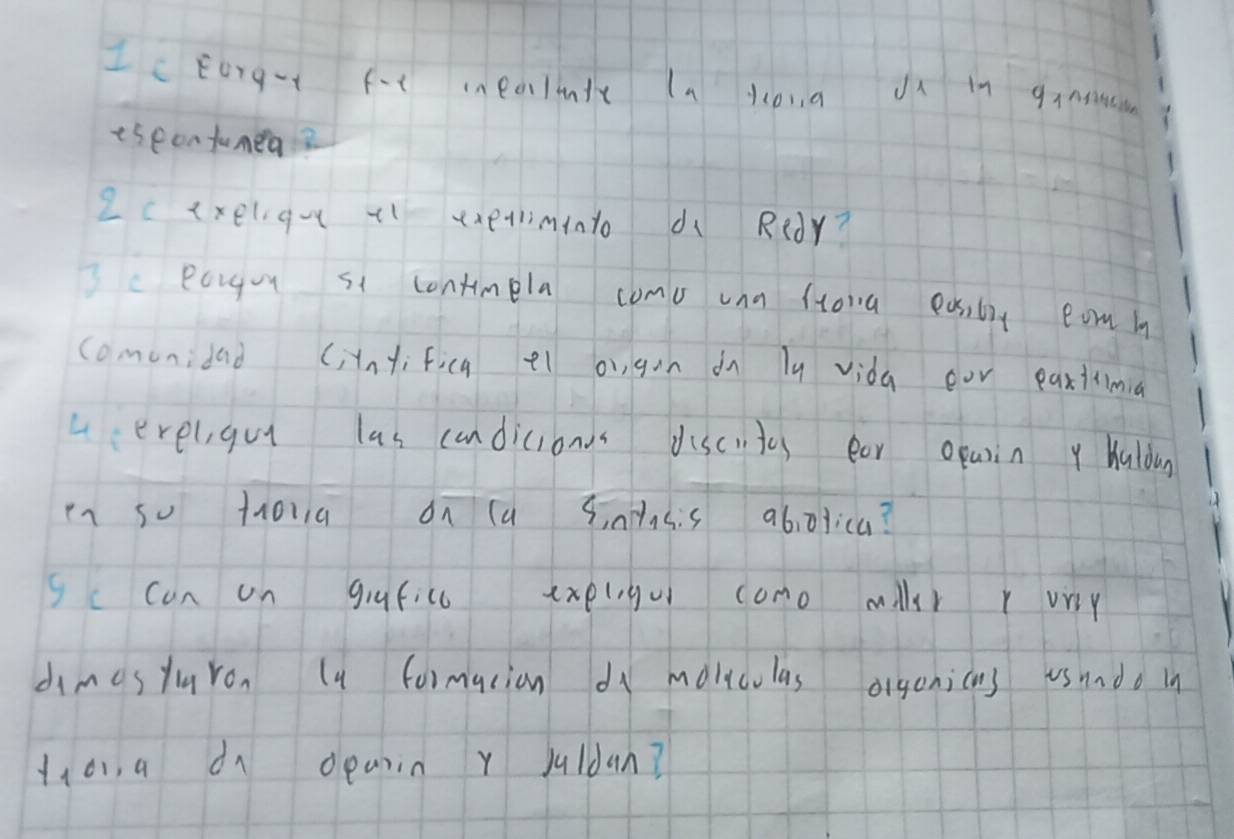 1 ¿ Porque fue inportante la teoria de la generacion
espontanea?
2 ¿ explique el experimento de Redy?
3 ¿ porque se contempla como una teoria posible por la
comonidad cientifica el origen de la vida por paxtermia
4 ¿ explique las candiciones discritas por oparin y Haldan
en su teoria de la sintesis abiotica?
5 ¿ Con un grafico explique como miller y urey
demostraron la formacion de moleculas organicas usando la
teoria de oparin y Jaldan?